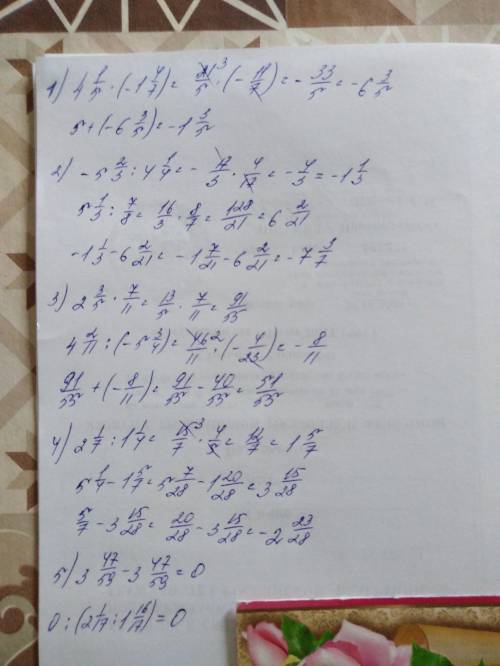 1) 4 1/5 · (-1 4/7) = 21/5 ³ · (- 11/7) = - 33/5 = -6 3/5
5 + (-6 3/5) = -1 3/5
2) -5 2/3 : 4 1/4 = - 17/3 · 4/17 = - 4/3 = -1 1/3
5 1/3 : 7/8 = 16/3 · 8/7 = 128/21 = 6 2/21
-1 1/3 - 6 2/21 = -1 7/21 - 6 2/21 = -7 3/7
3) 2 3/5 · 7/11 = 13/5 · 7/11 = 91/55
4 2/11 : (-5 3/4) = 46/11 ² · (- 4/23) = - 8/11
91/55 + (- 8/11) = 91/55 - 40/55 = 51/55
4) 2 1/7 : 1 1/4 = 15/7 ³ · 4/5 = 12/7 = 1 5/7
5 1/4 - 1 5/7 = 5 7/28 - 1 20/28 = 3 15/28
5/7 - 3 15/28 = 20/28 - 3 15/28 = -2 23/28
5) 3 47/59 - 3 47/59 = 0
0 : (2 1/17 : 1 16/17) = 0